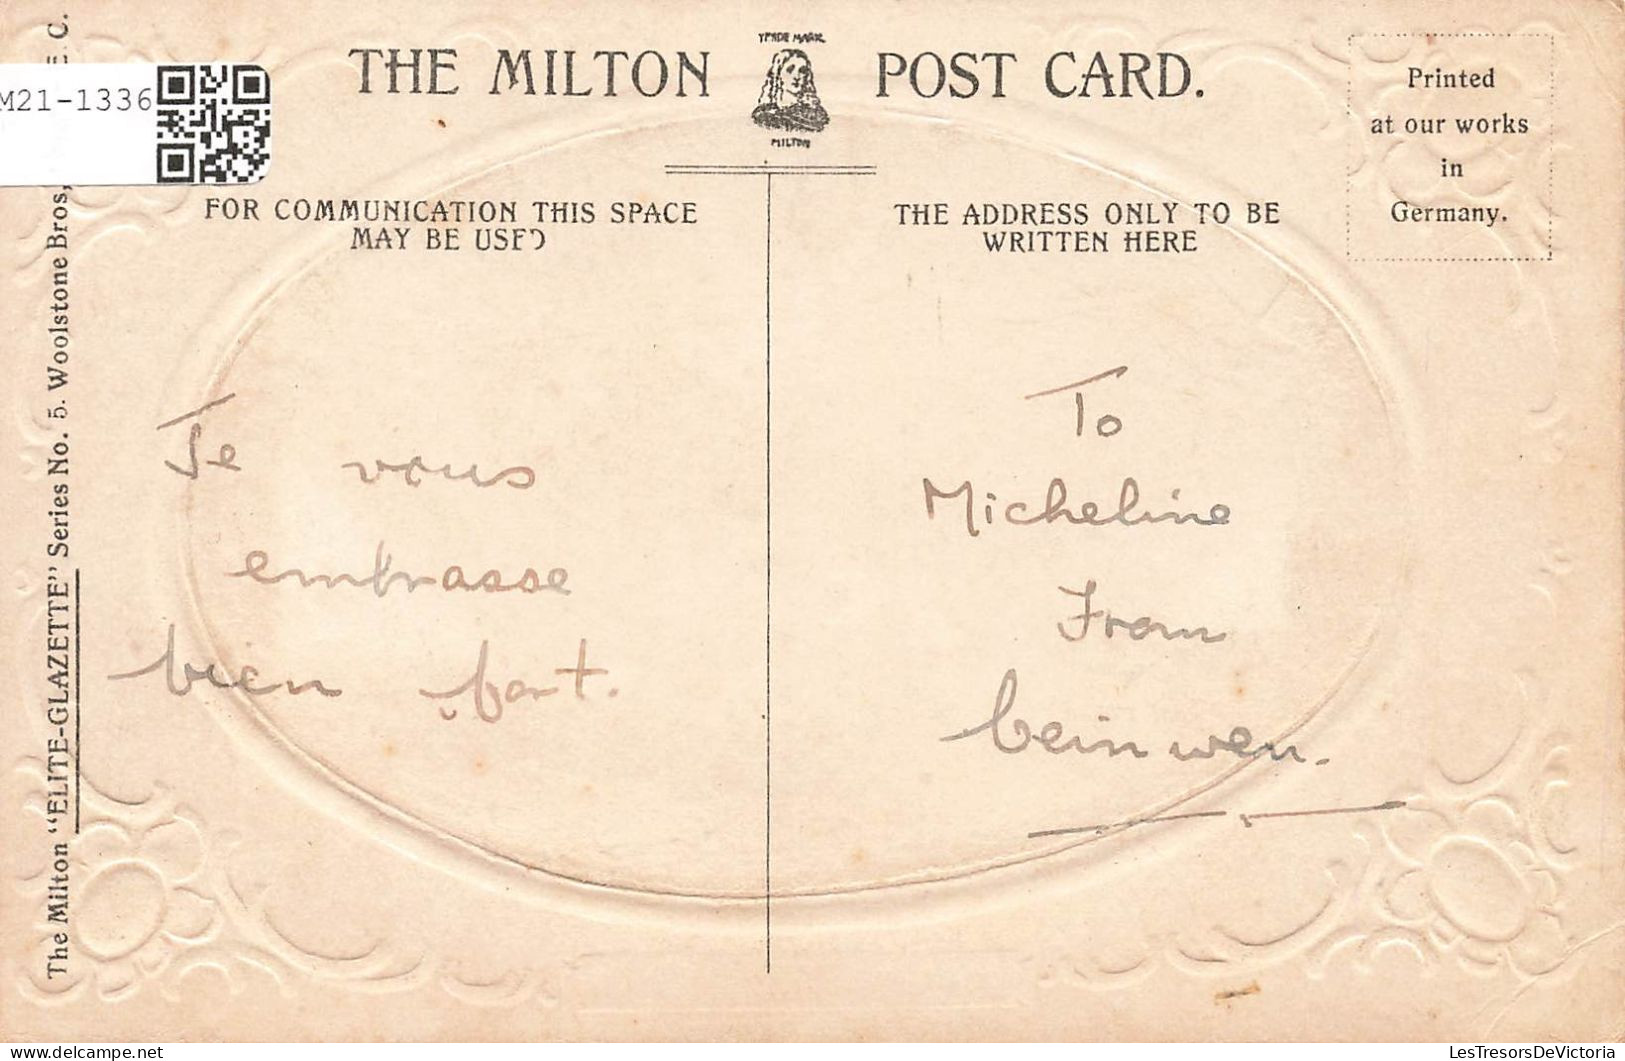 THE MILTON POST CARD.
TRADE MARK
MILTON
Printed
at our works
in
Germany.
M21-1336
FOR COMMUNICATION THIS SPACE
MAY BE USED
THE ADDRESS ONLY TO BE
WRITTEN HERE
The Milton "ELITE-GLAZETTE" Series No. 5. Woolstone Bros, E.C.
Je vous
embrasse
bien fort.
To
Micheline
From
LesTresorsDeVictoria.com